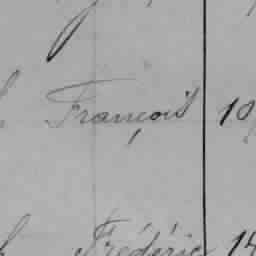 François 10
Frédéric 14